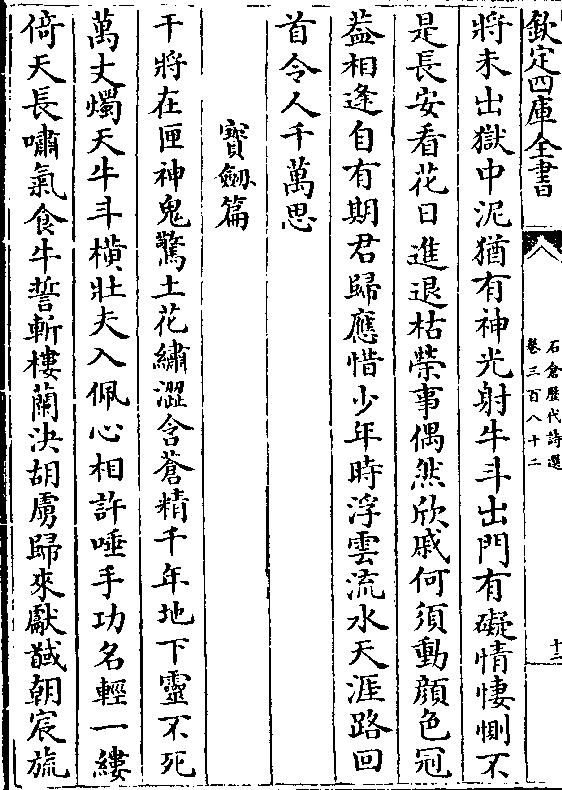 欽定四庫全書
石倉歷代詩選
卷三百八十二
十二
將未出獄中泥猶有神光射牛斗出門有礙情悽惻不
是長安看花日進退枯榮事偶然欣戚何須動顔色冠
葢相逢自有期君歸應惜少年時浮雲流水天涯路回
首令人千萬思
寶劔篇
干將在匣神鬼驚土花繡澀含蒼精千年地下靈不死
萬丈燭天牛斗橫壯夫入佩心相許唾手功名輕一縷
倚天長嘯氣食牛誓斬樓蘭決胡虜歸來獻馘朝宸旒